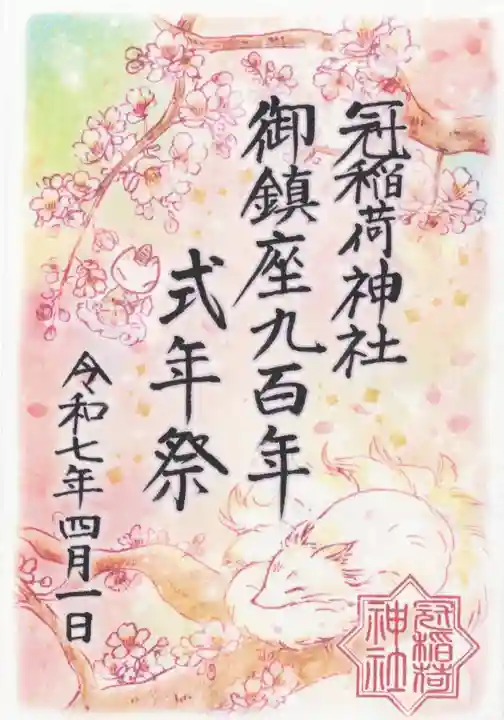 冠稲荷神社
御鎮座九百年
式年祭
令和七年四月一日
冠稲荷
神社